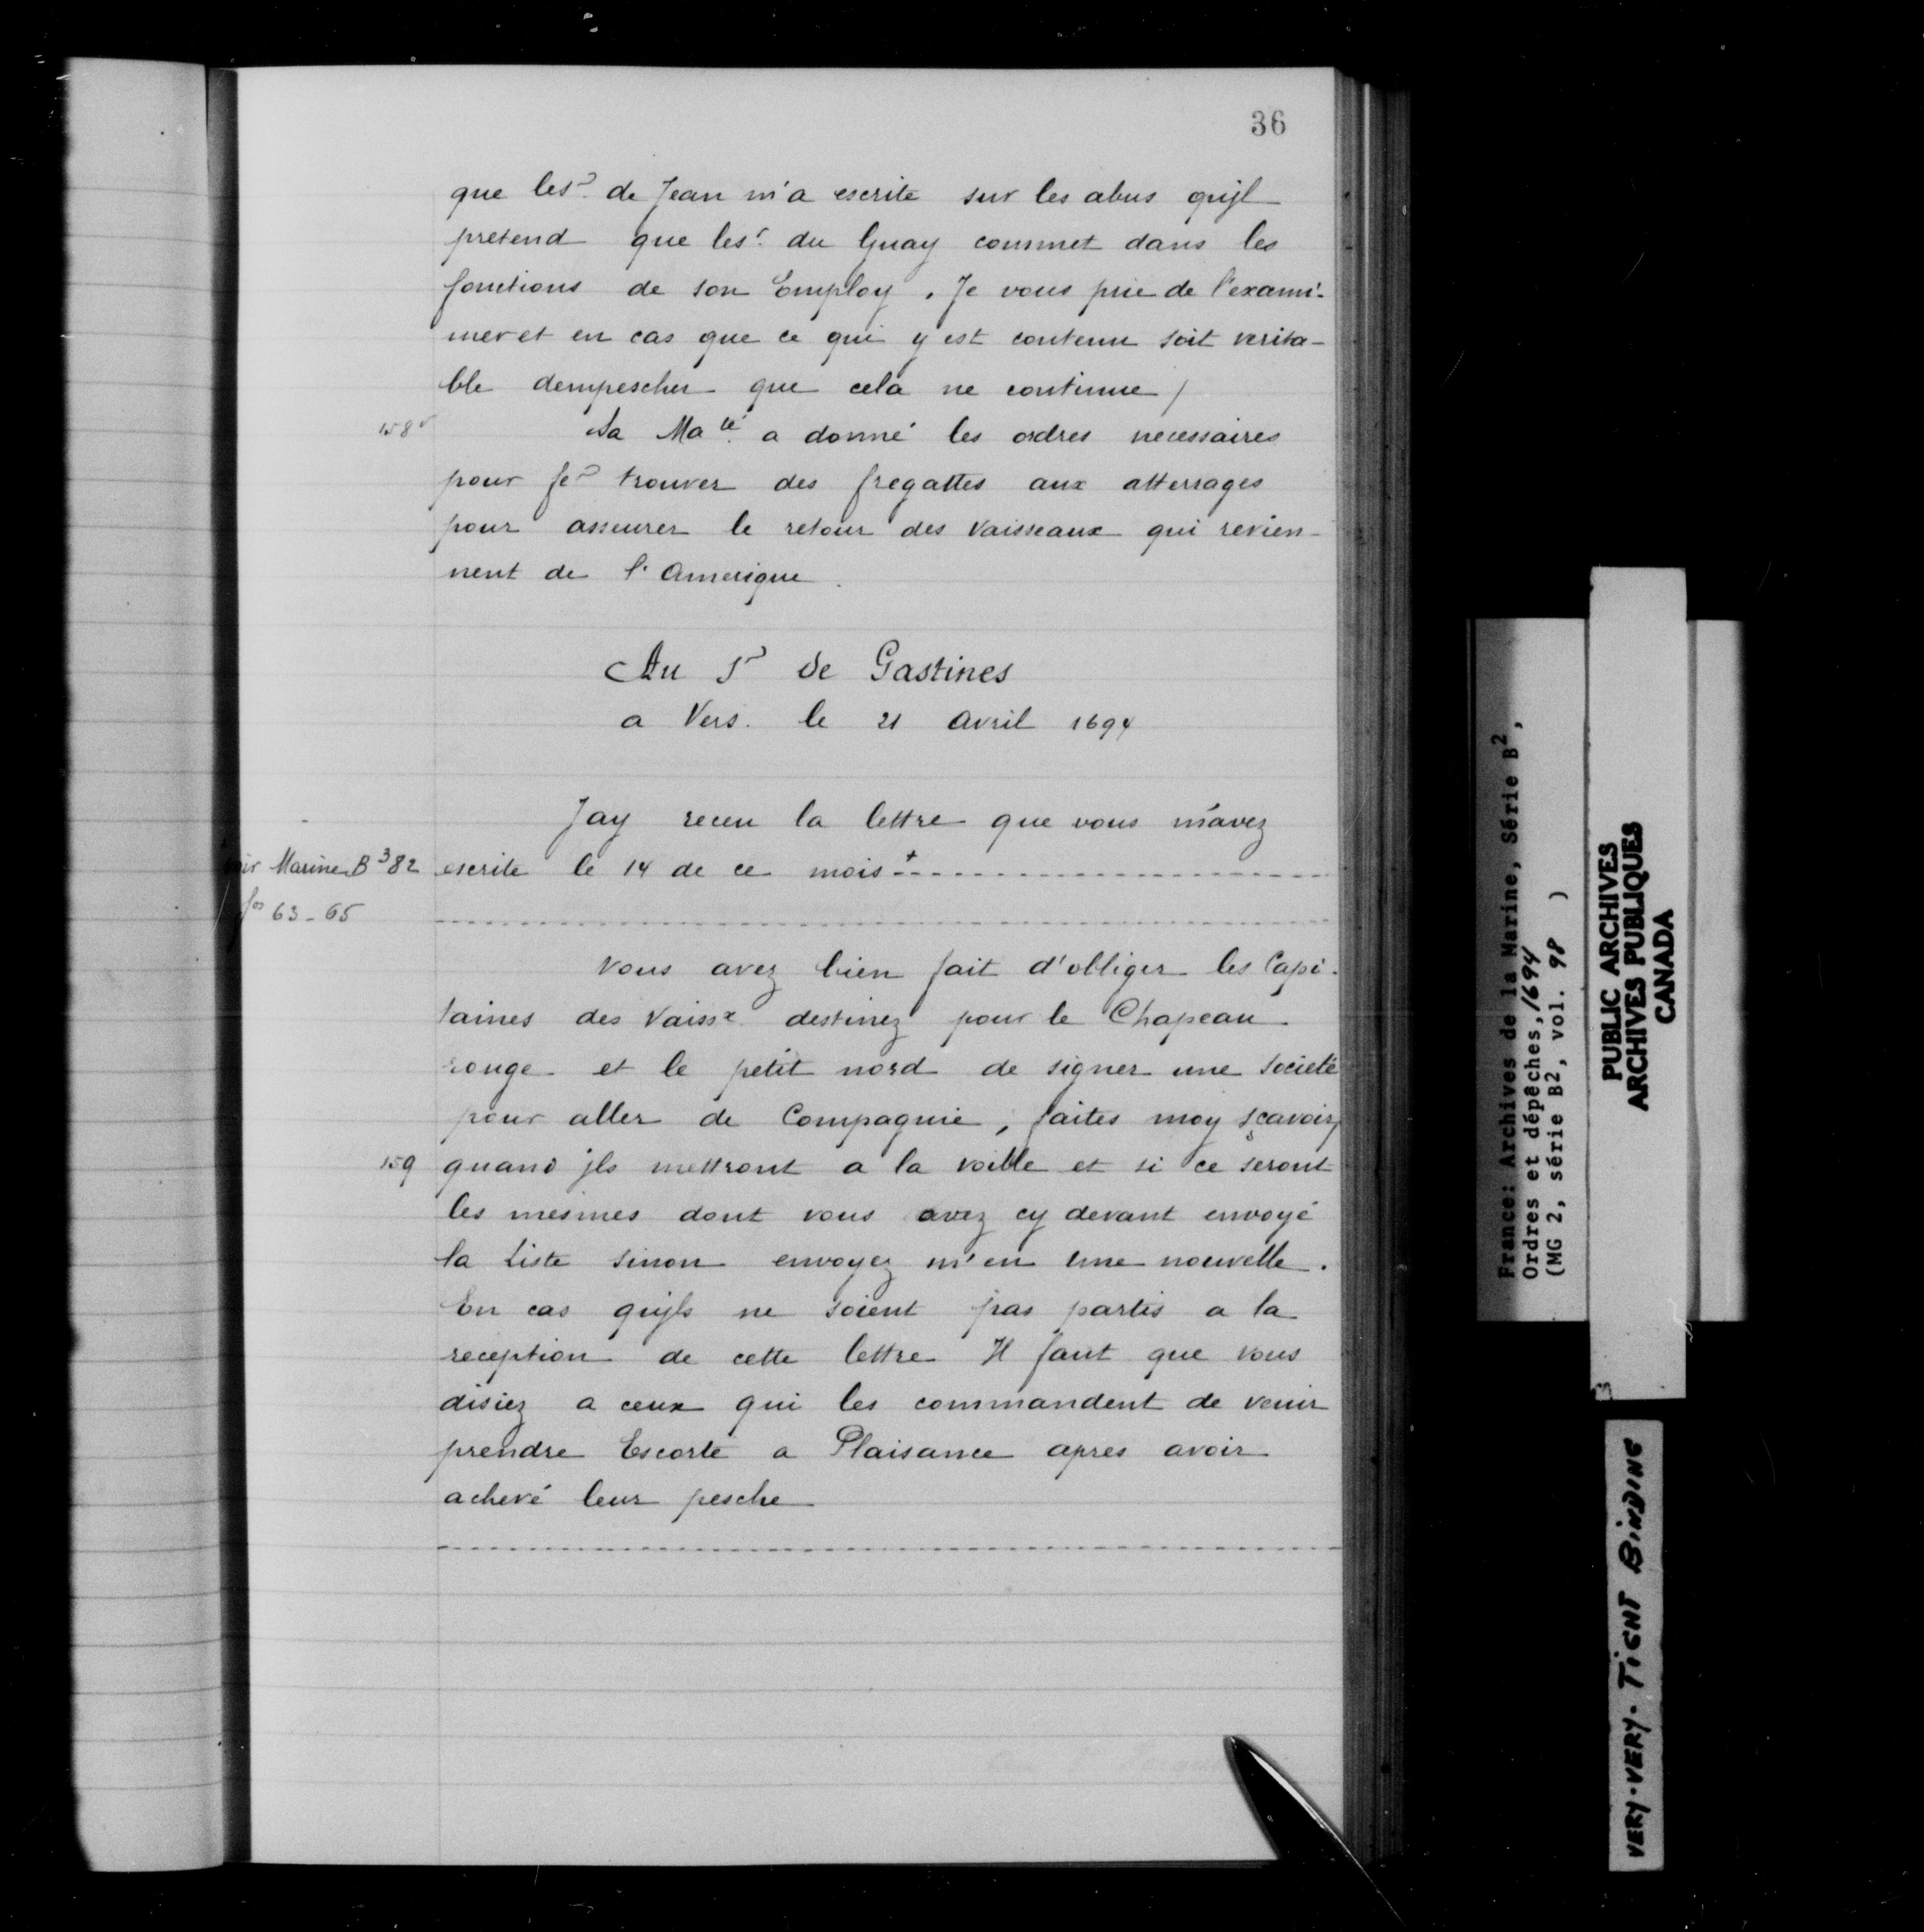 36
que les.r de Jean m'a escrite sur les abus qu'jl
pretend que les.r du Guay commet dans les
fonctions de son Employ. Je vous prie de l'exami-
ner et en cas que ce qui y est contenu soit verita-
ble dempescher que cela ne continue /
158v
Sa Ma.té a donné les ordres necessaires
pour fe.r trouver des fregattes aux atterrages
pour asseurer le retour des vaisseaux qui revien-
nent de l'Amerique.
Au S.r de Gastines
a Vers. le 21 avril 1694
Jay receu la lettre que vous m'avez
voir Marine B³82
escrite le 14 de ce mois +
fos 63-65
Vous avez bien fait d'obliger les Capi-
taines des Vaiss.x destinez pour le Chapeau
rouge et le petit nord de signer une societé
pour aller de Compagnie, faites moy scavoir
159
quand jls mettront a la voille et si ce seront
les mesmes dont vous avez cy devant envoyé
la Liste sinon envoyez m'en une nouvelle.
En cas qu'jls ne soient pas partis a la
reception de cette lettre Il faut que vous
disiez a ceux qui les commandent de venir
prendre Escorte a Plaisance apres avoir
achevé leur pesche
France: Archives de la Marine, Série B²,
Ordres et dépêches, 1694
(MG 2, série B2, vol. 98 )
PUBLIC ARCHIVES
ARCHIVES PUBLIQUES
CANADA
VERY-VERY-TIGHT BINDING